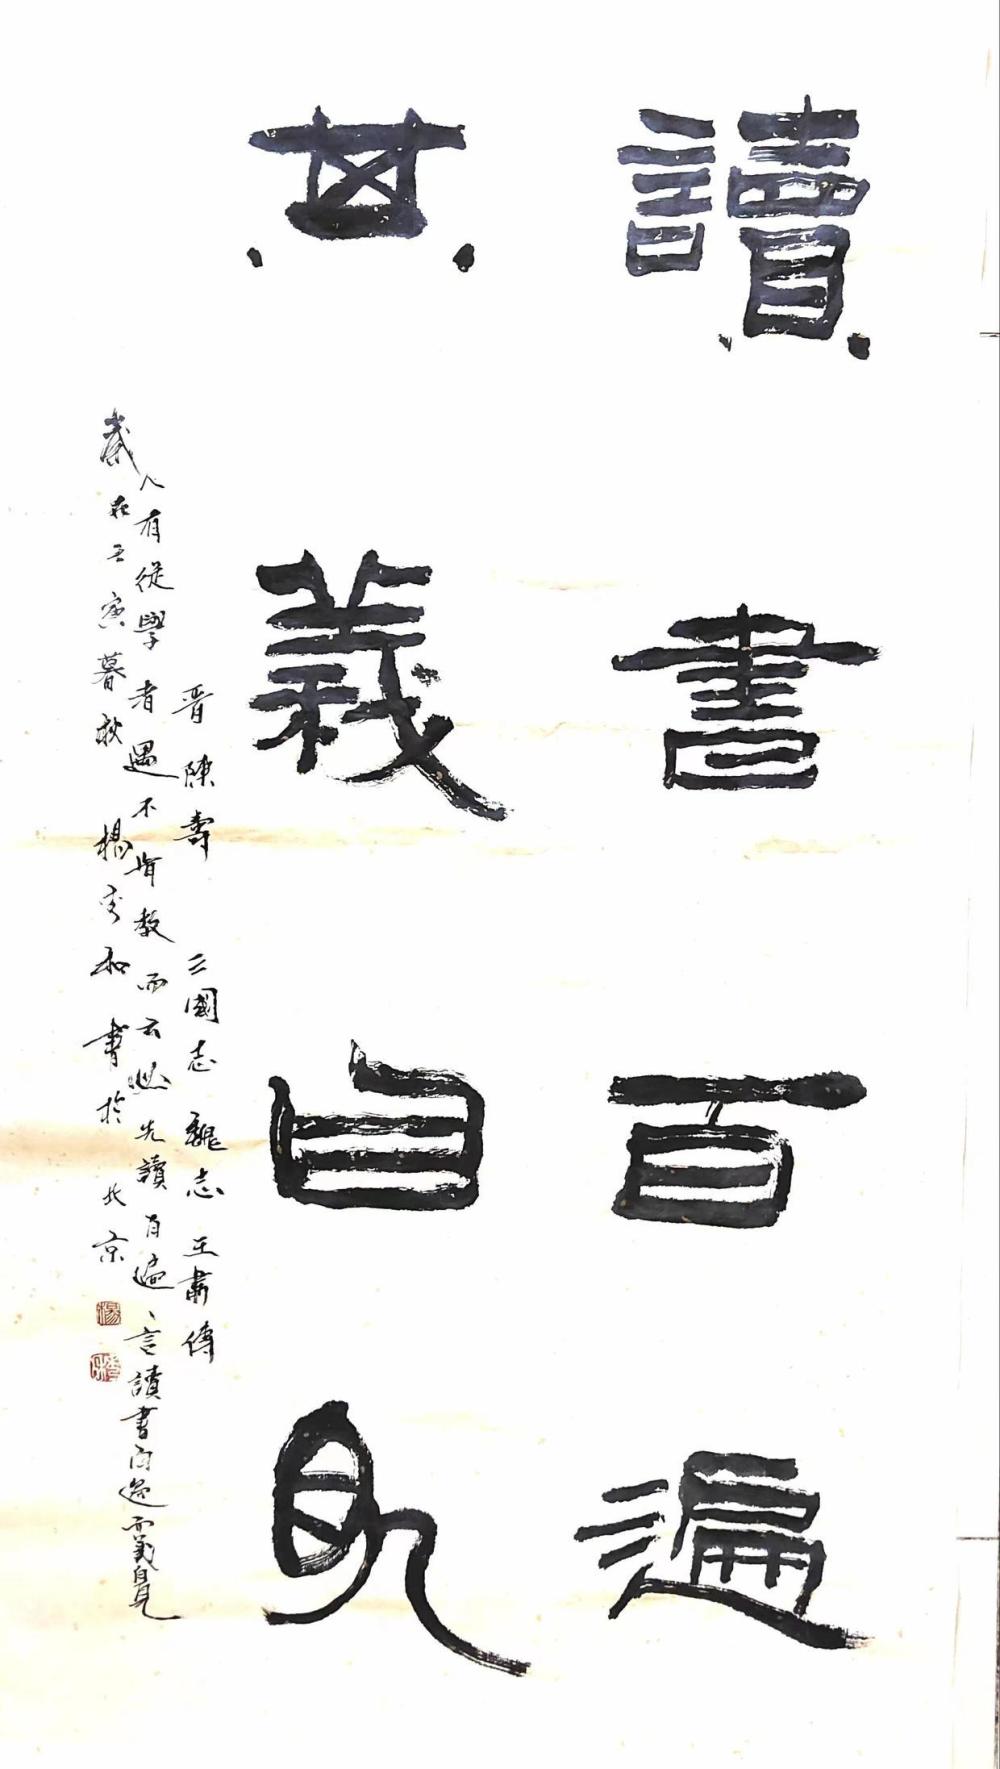 讀書百遍
其義自見
晉陳壽三國志魏志王肅傳
人有從學者遇不肯教而云必先讀百遍言讀書百遍而義自見
歲在壬寅暮秋楊家和書於北京
楊